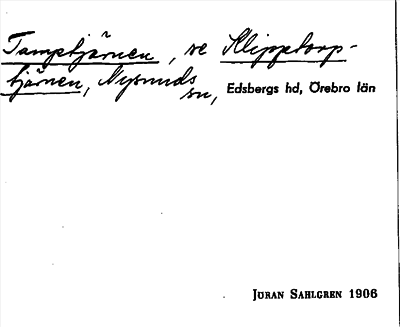 Tamptjärnen, se Klipptorp-
tjärnen, Nysunds
sn, Edsbergs hd, Örebro län
JÖRAN SAHLGREN 1906